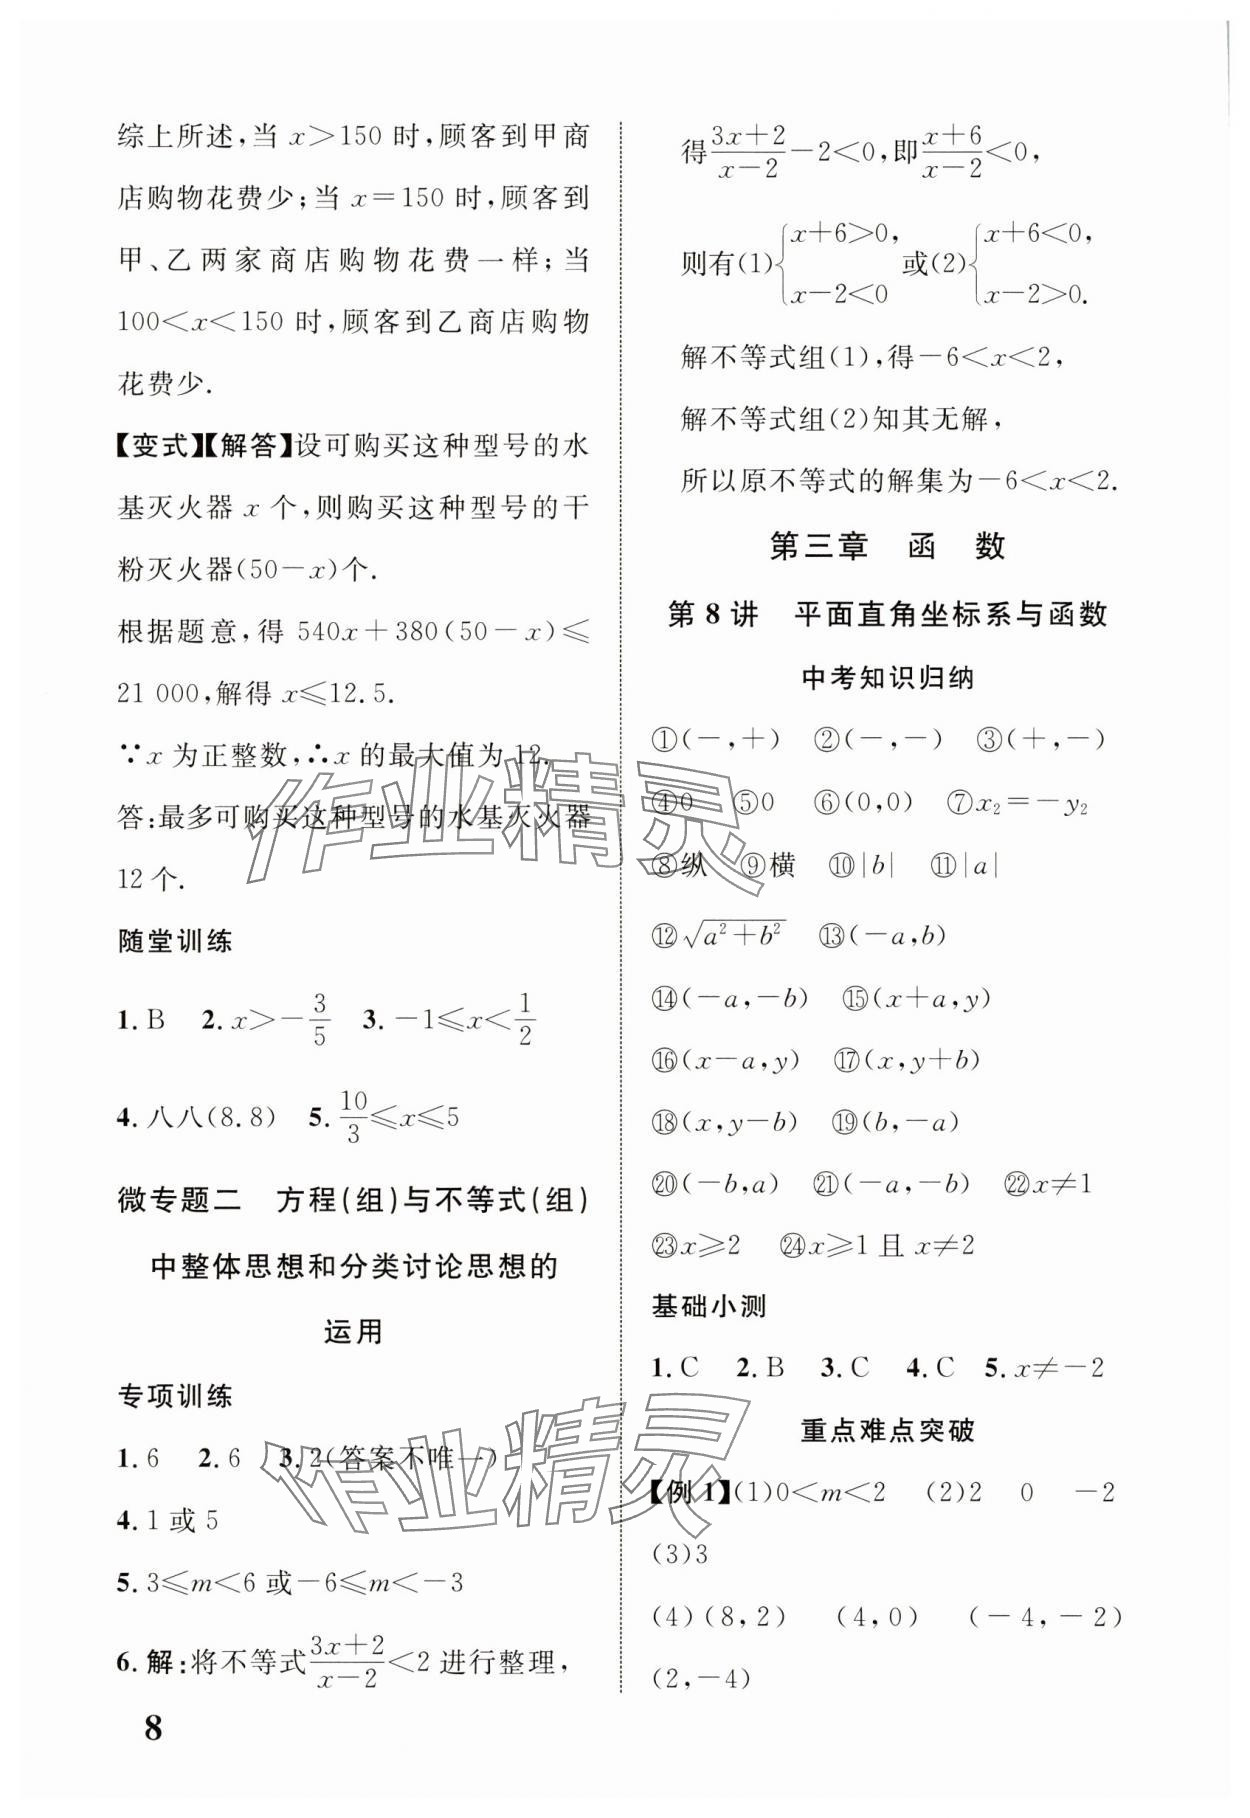 综上所述,当 x>150 时,顾客到甲商
店购物花费少;当 x=150 时,顾客到
甲、乙两家商店购物花费一样;当
100<x<150 时,顾客到乙商店购物
花费少.
【变式】【解答】设可购买这种型号的水
基灭火器 x 个,则购买这种型号的干
粉灭火器(50-x)个.
根据题意,得 540x+380(50-x)≤
21 000,解得 x≤12.5.
∵x 为正整数,∴x 的最大值为 12.
答:最多可购买这种型号的水基灭火器
12 个.
随堂训练
1. B 2. x>-3/5 3. -1≤x<1/2
4. 八八(8.8) 5. 10/3≤x≤5
微专题二 方程(组)与不等式(组)
中整体思想和分类讨论思想的
运用
专项训练
1. 6 2. 6 3. 2(答案不唯一)
4. 1 或 5
5. 3≤m<6 或-6≤m<-3
6. 解:将不等式(3x+2)/(x-2)<2 进行整理,
8
得(3x+2)/(x-2)-2<0,即(x+6)/(x-2)<0,
则有(1){x+6>0, x-2<0 或(2){x+6<0, x-2>0.
解不等式组(1),得-6<x<2,
解不等式组(2)知其无解,
所以原不等式的解集为-6<x<2.
第三章 函 数
第 8 讲 平面直角坐标系与函数
中考知识归纳
①(-,+) ②(-,-) ③(+,-)
④0 ⑤0 ⑥(0,0) ⑦x₂=-y₂
⑧纵 ⑨横 ⑩|b| ⑪|a|
⑫√(a²+b²) ⑬(-a,b)
⑭(-a,-b) ⑮(x+a,y)
⑯(x-a,y) ⑰(x,y+b)
⑱(x,y-b) ⑲(b,-a)
⑳(-b,a) ㉑(-a,-b) ㉒x≠1
㉓x≥2 ㉔x≥1 且 x≠2
基础小测
1. C 2. B 3. C 4. C 5. x≠-2
重点难点突破
【例 1】(1)0<m<2 (2)2 0 -2
(3)3
(4)(8,2) (4,0) (-4,-2)
(2,-4)
作业精灵
作业精灵